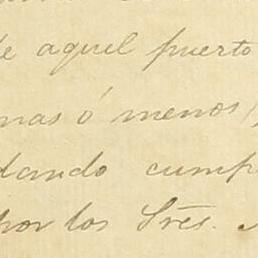 de aquel puerto
mas ó menos,
dando cump
por los Sres.